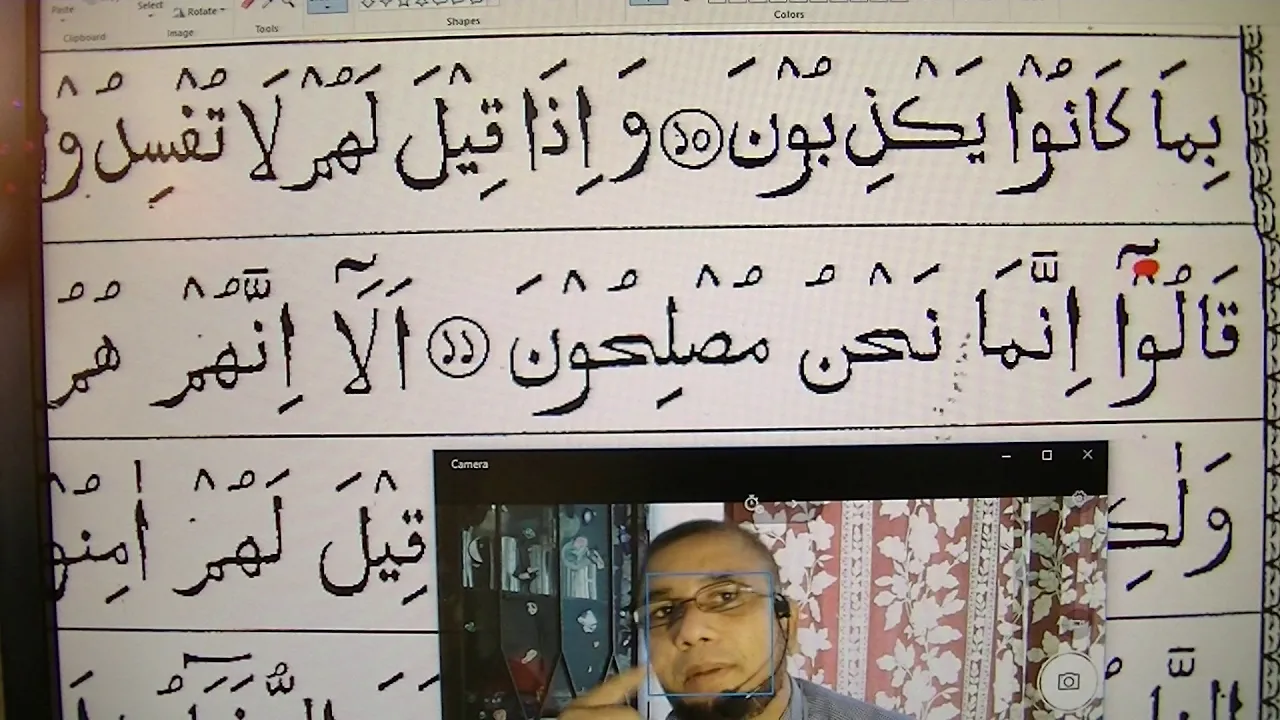 Paste Select Rotate
Clipboard Image Tools Shapes Colors
بِمَا كَانُوْا يَكْذِبُوْنَ ١٠ وَ اِذَا قِيْلَ لَهُمْ لَا تُفْسِدُوْ
قَالُوْٓا اِنَّمَا نَحْنُ مُصْلِحُوْنَ ١١ اَلَآ اِنَّهُمْ هُمُ
Camera
قِيْلَ لَهُمْ